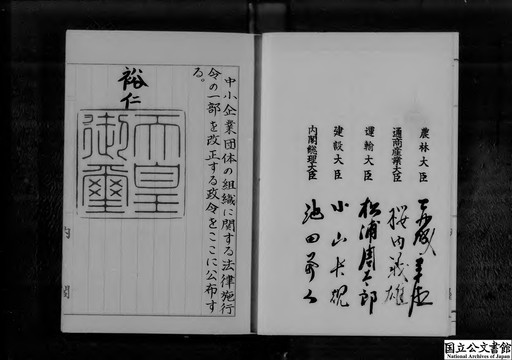 農林大臣 赤城宗徳
通商産業大臣 桜内義雄
運輸大臣 松浦周太郎
建設大臣 小山長規
内閣総理大臣 池田勇人
中小企業団体の組織に関する法律施行
令の一部を改正する政令をここに公布す
る。
裕仁
天皇
御璽
内閣
国立公文書館
National Archives of Japan